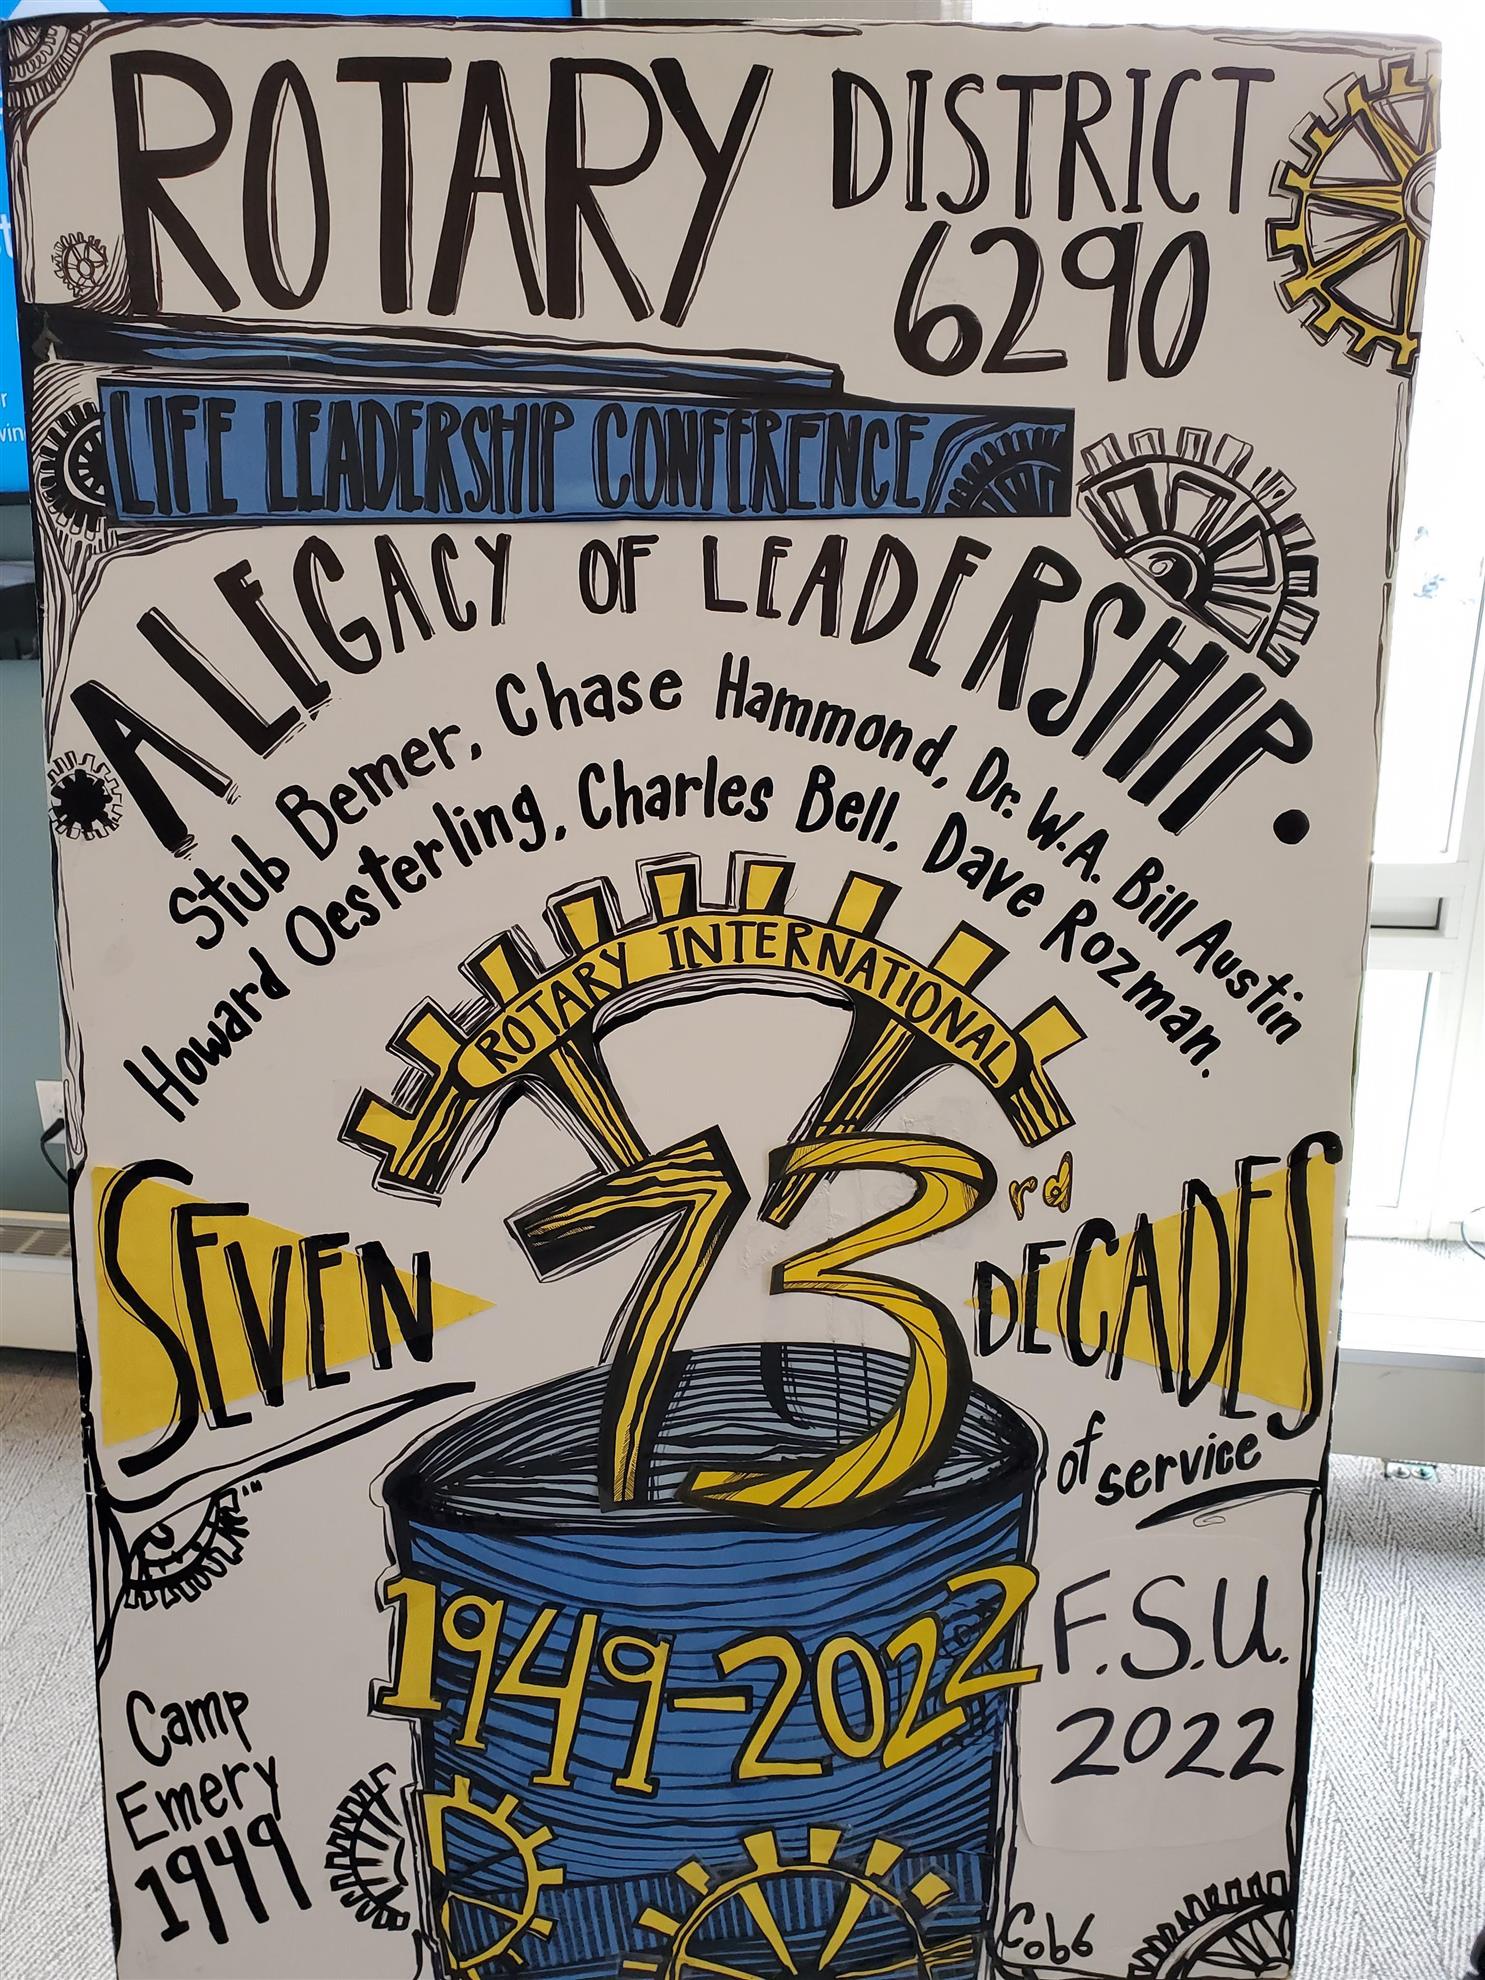 ROTARY DISTRICT
6290
LIFE LEADERSHIP CONFERENCE
A LEGACY OF LEADERSHIP.
Stub Bemer, Chase Hammond, Dr. W.A. Bill Austin
Howard Oesterling, Charles Bell, Dave Rozman.
ROTARY INTERNATIONAL
73rd
SEVEN DECADES
of service
1949-2022
F.S.U.
2022
Camp
Emery
1949
Cobb